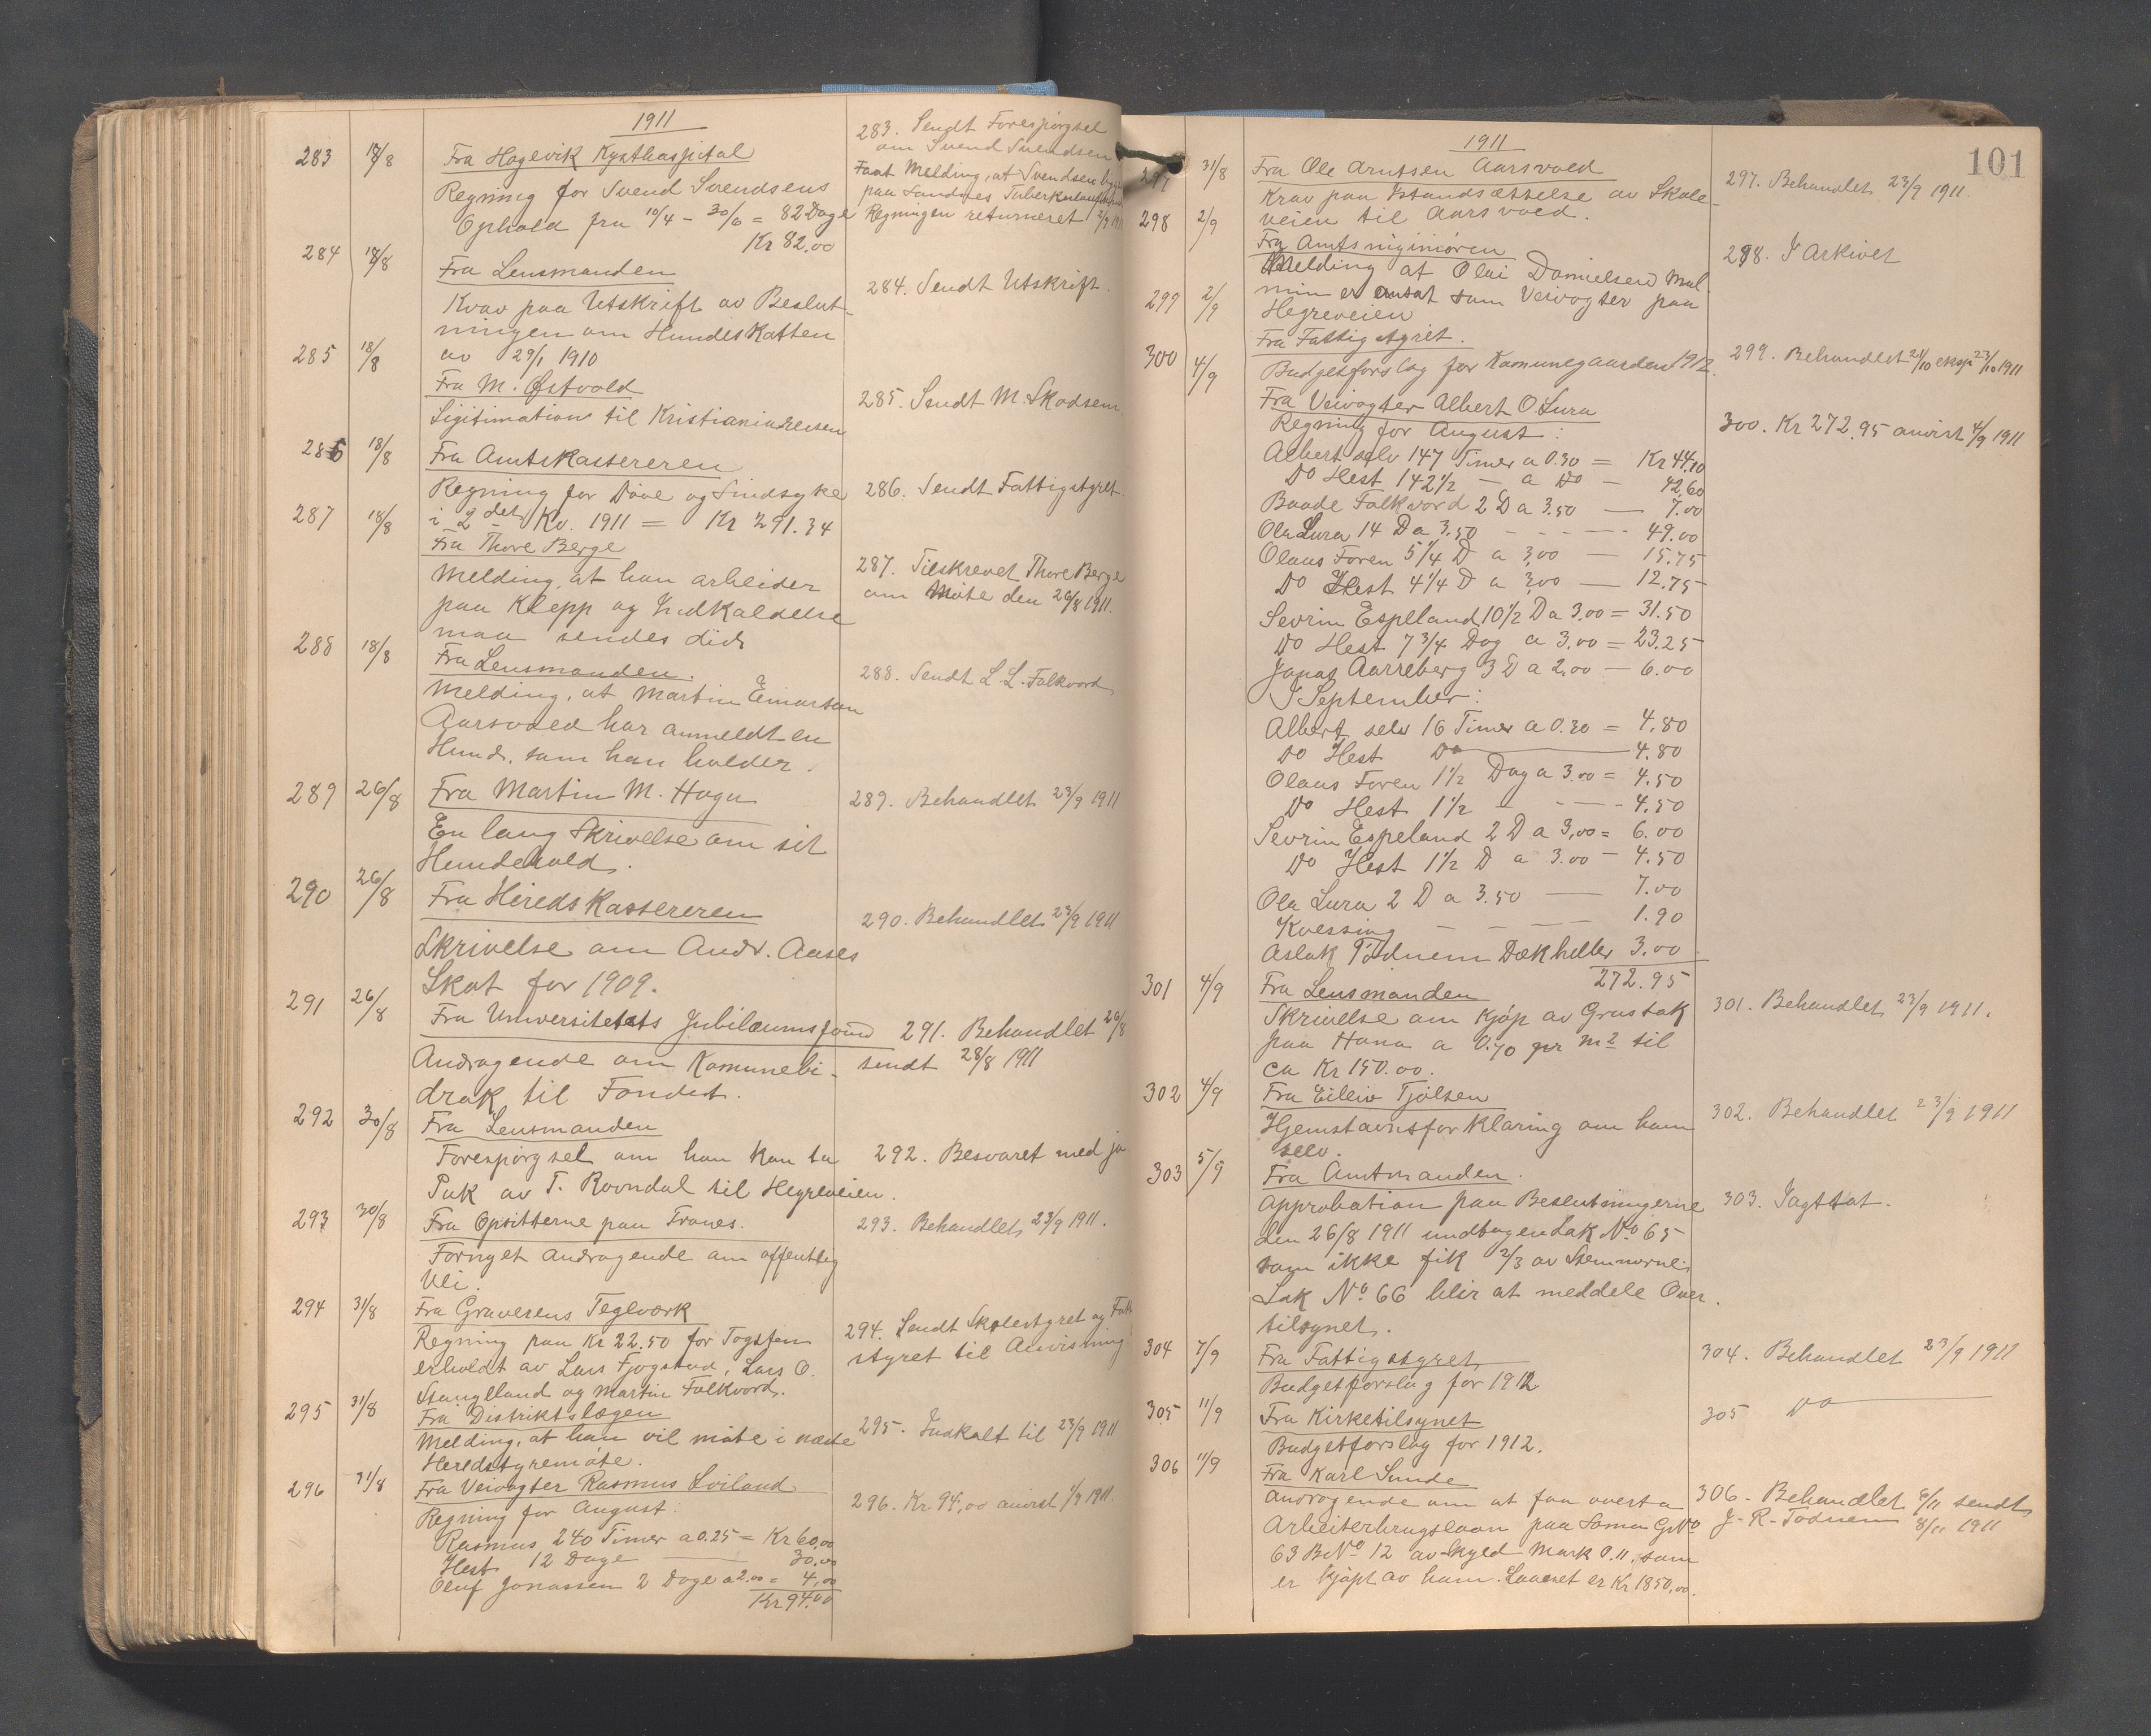 1911
283 18/8 Fra Hagevik Kysthospital
Regning for Svend Svendsens
Ophold fra 10/4 - 30/6 = 82 Dage
Kr 82.00
283. Sendt Forespørgsel
om Svend Svendsen
Faat Melding, at Svendsen
paa Sandnes
Regningen returneret 2/9
284 18/8 Fra Lensmanden
Krav paa Utskrift av Beslut-
ningen om Hundeskatten
av 29/1 1910
284. Sendt Utskrift.
285 18/8 Fra M. Østvold
Ligitimation til Kristianiareisen
285. Sendt M. Skadsem
286 18/8 Fra Amtskassereren
Regning for Døve og Sindsyke
i 2det Kv. 1911 = Kr 291.34
286. Sendt Fattigstyret
287 18/8 Fra Thore Berge
Melding, at han arbeider
paa Klepp og Indkaldelse
maa sendes did
287. Tilskrevet Thore Berge
om Møte den 26/8 1911.
288 18/8 Fra Lensmanden.
Melding, at Martin Einarsen
Aarsvold har anmeldt en
Hund, som han holder.
288. Sendt L. L. Folkvord
289 26/8 Fra Martin M. Hagu
En lang Skrivelse om sit
Hundehold.
289. Behandlet 23/9 1911
290 26/8 Fra Heredskassereren
Skrivelse om Andr. Aases
Skat for 1909.
290. Behandlet 23/9 1911
291 26/8 Fra Universitetets Jubilæumsfond
Andragende om Komunebi-
drak til Fondet.
291. Behandlet 26/8
sendt 28/8 1911
292 30/8 Fra Lensmanden
Forespørgsel om han kan ta
Puk av T. Rovndal til Hegreveien.
292. Besvaret med ja
293 30/8 Fra Opsitterne paa Trones.
Fornyet Andragende om offentlig
Vei.
293. Behandlet 23/9 1911.
294 31/8 Fra Graverens Teglverk
Regning paa Kr 22.50 for Togsten
erholdt av Lars Fjogstad, Lars O.
Stangeland og Martin Folkvord.
294. Sendt Skolestyret og
styret til Anvisning.
295 31/8 Fra Distriktslægen
Melding, at han vil møte i næste
Heredstyremøte.
295. Indkalt til 23/9 1911
296 31/8 Fra Veivogter Rasmus Sviland
Regning for August:
Rasmus 240 Timer a 0.25 = Kr 60,00
Hest 12 Dage — 30.00
Oluf Jonassen 2 Dage a 2.00 = 4,00
Kr 94.00
296. Kr. 94,00 anvist 1/9 1911.
101
1911
297 31/8 Fra Ole Arntsen Aarsvold
Krav paa Istandsættelse av Skole-
veien til Aarsvold.
297. Behandlet 23/9 1911.
298 2/9 Fra Amtsinginiøren
Melding at Olai Danielsen Mal-
min er ansat som Veivogter paa
Hegreveien
298. I Arkivet
299 2/9 Fra Fattigstyret.
Budgetforslag for Komunegaarden 1912.
299. Behandlet 21/10 eksp 23/10 1911
300 4/9 Fra Veivogter Albert O. Lura
Regning for August:
300. Kr 272.95 anvist 4/9 1911
Albert selv 147 Timer a 0.30 = Kr 44.10
Do Hest 142 1/2 — a Do — 42.60
Baade Folkvord 2 D a 3.50 — 7.00
Ola Lura 14 D a 3.50 - - - - 49.00
Olaus Foren 5 1/4 D a 3,00 — 15.75
Do Hest 4 1/4 D a 3,00 — 12.75
Sevrin Espeland 10 1/2 D a 3.00 = 31.50
Do Hest 7 3/4 Dag a 3.00 = 23.25
Jonas Aarreberg 3 D a 2.00 — 6.00
I September:
Albert selv 16 Timer a 0.30 = 4.80
Do Hest Do — 4.80
Olaus Foren 1 1/2 Dag a 3.00 = 4.50
Do Hest 1 1/2 - - - - 4.50
Sevrin Espeland 2 D a 3,00 = 6.00
Do Hest 1 1/2 D a 3.00 - 4.50
Ola Lura 2 D a 3.50 — 7.00
Kvessing — — — 1.90
Aslak Tødnem Dækheller 3.00
272.95
301 4/9 Fra Lensmanden
Skrivelse om Kjøp av Grustak
paa Hana a 0.70 pr m2 til
ca Kr 150.00.
301. Behandlet 23/9 1911.
302 4/9 Fra Eileiv Tjølsen
Hjemstavnsforklaring om ham
selv.
302. Behandlet 23/9 1911
303 5/9 Fra Amtmanden.
Approbation paa Beslutningerne
den 26/8 1911 undtagen Sak No 65
som ikke fik 2/3 av Stemmerne.
Sak No 66 blir at meddele Over-
tilsynet.
303. Iagttat.
304 7/9 Fra Fattigstyret
Budgetforslag for 1912
304. Behandlet 23/9 1911
305 11/9 Fra Kirketilsynet
Budgetforslag for 1912.
305 Do
306 11/9 Fra Karl Sunde
Andragende om at faa overta
Arbeiterbrugslaan paa Soma G No
63 B No 12 av Skyld Mark 0.11, som
er kjøpt av ham. Laanet er Kr 1850,00.
306. Behandlet 4/11 sendt
J. R. Tødnem 8/11 1911